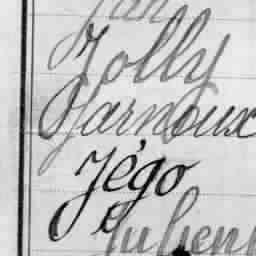 Jan
Jolly
Jarnoux
Jégo
Julien